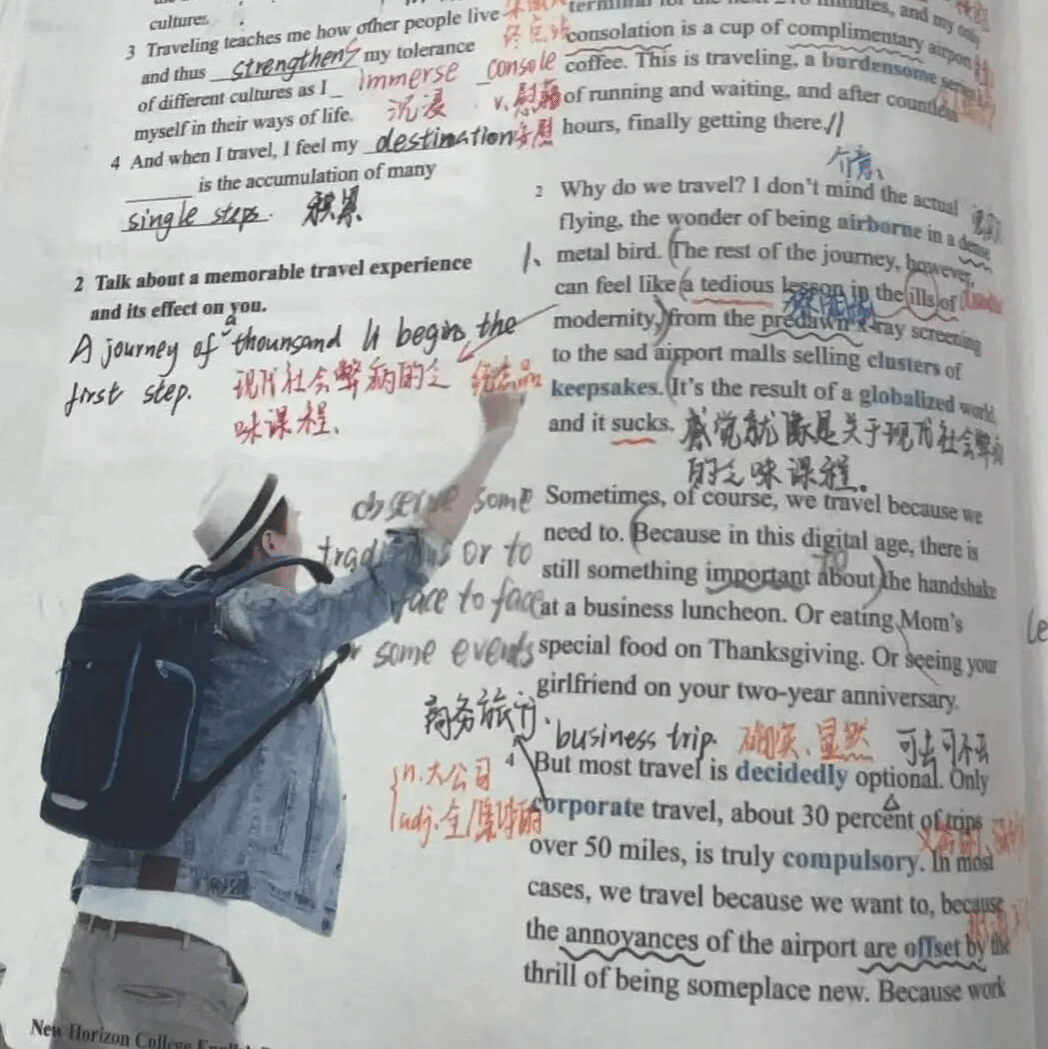 cultures.
3 Traveling teaches me how other people live
and thus strengthens my tolerance
of different cultures as I immerse
沉浸
myself in their ways of life.
4 And when I travel, I feel my destination
is the accumulation of many
single steps. 积累
2 Talk about a memorable travel experience
and its effect on you.
A journey of a thounsand li begins the
first step.
现代社会弊病的乏
味课程、
纪念品
observe some
traditions or to
face to face
some events
商务旅行、
business trip.
n.大公司
adj.全
New Horizon College English
终点站
console
v.慰藉
安慰
minutes, and my only
consolation is a cup of complimentary airport
coffee. This is traveling, a burdensome series
of running and waiting, and after countless
hours, finally getting there.//
介意、
2 Why do we travel? I don't mind the actual
flying, the wonder of being airborne in a dense
1、
metal bird. The rest of the journey, however,
can feel like a tedious lesson in the ills of
modernity, from the predawn x-ray screening
to the sad airport malls selling clusters of
keepsakes. It's the result of a globalized world,
and it sucks. 感觉就像是关于现代社会弊病
的乏味课程.
Sometimes, of course, we travel because we
need to. Because in this digital age, there is
still something important about the handshake
to
at a business luncheon. Or eating Mom's
special food on Thanksgiving. Or seeing your
girlfriend on your two-year anniversary.
确实、显然 可去可不去
4 But most travel is decidedly optional. Only
corporate travel, about 30 percent of trips
over 50 miles, is truly compulsory. In most
cases, we travel because we want to, because
the annoyances of the airport are offset by the
thrill of being someplace new. Because work